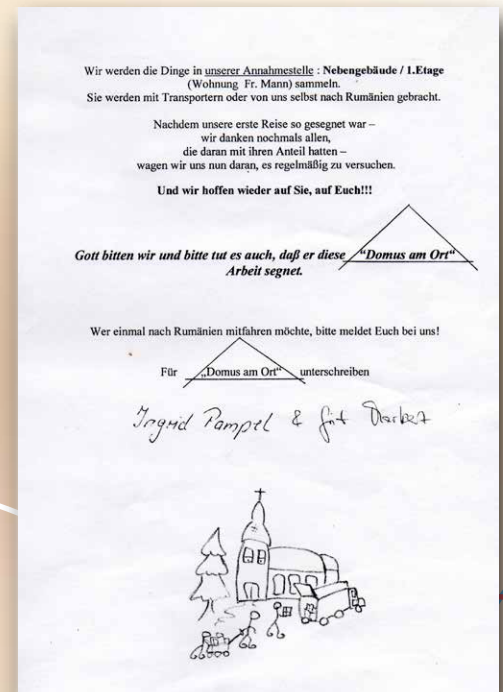 Wir werden die Dinge in unserer Annahmestelle : Nebengebäude / 1.Etage
(Wohnung Fr. Mann) sammeln.
Sie werden mit Transportern oder von uns selbst nach Rumänien gebracht.
Nachdem unsere erste Reise so gesegnet war –
wir danken nochmals allen,
die daran mit ihren Anteil hatten –
wagen wir uns nun daran, es regelmäßig zu versuchen.
Und wir hoffen wieder auf Sie, auf Euch!!!
Gott bitten wir und bitte tut es auch, daß er diese "Domus am Ort"
Arbeit segnet.
Wer einmal nach Rumänien mitfahren möchte, bitte meldet Euch bei uns!
Für „Domus am Ort“ unterschreiben
Ingrid Pampel &